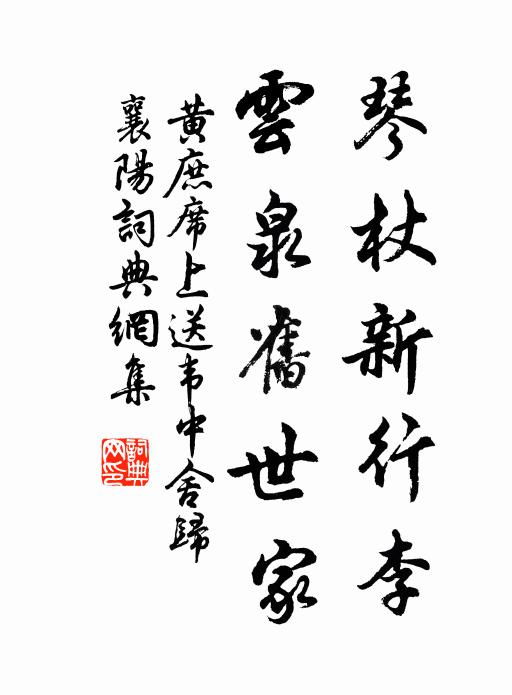 琴杖新行李
雲泉舊世家
黃庶席上送韦中舍歸
襄陽詞典網集
詞典
网印